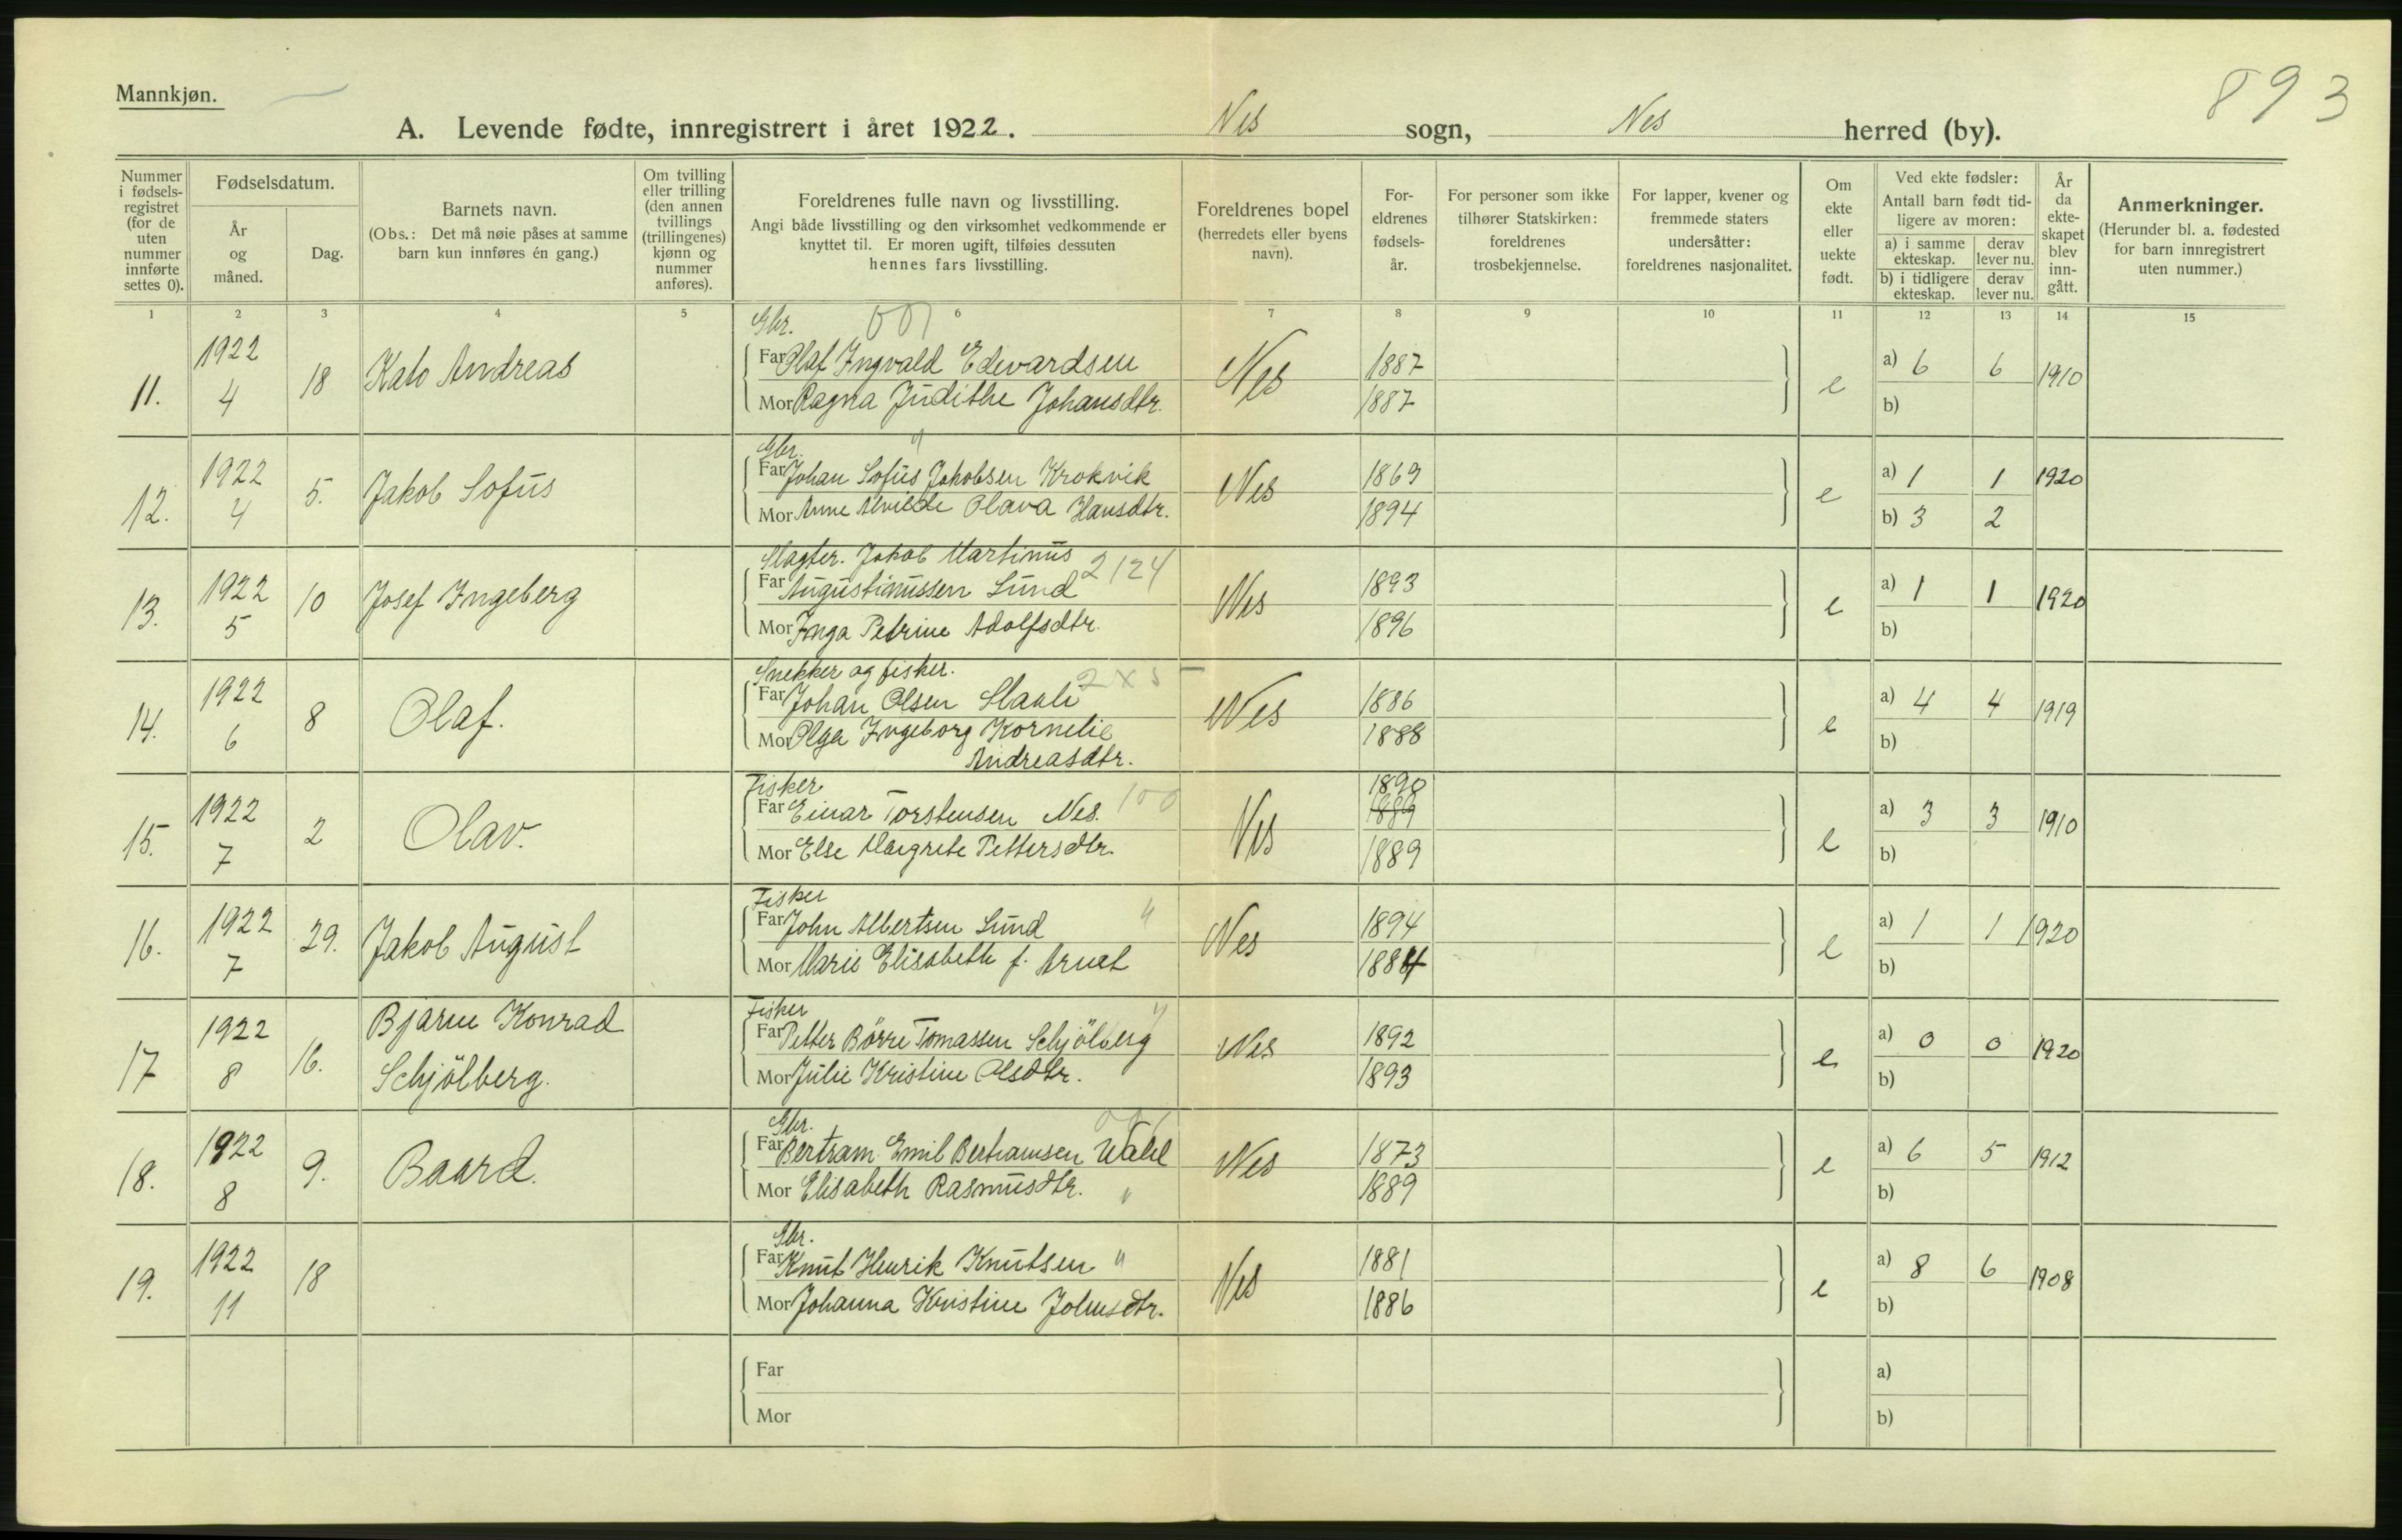 Mannkjøn.
893
A. Levende fødte, innregistrert i året 1922. Nes sogn, Nes herred (by).
Nummer i fødsels-registret (for de uten nummer innførte settes 0).
Fødselsdatum.
År og måned.
Dag.
Barnets navn.
(Obs.: Det må nøie påses at samme barn kun innføres én gang.)
Om tvilling eller trilling (den annen tvillings (trillingenes) kjønn og nummer anføres).
Foreldrenes fulle navn og livsstilling.
Angi både livsstilling og den virksomhet vedkommende er knyttet til. Er moren ugift, tilføies dessuten hennes fars livsstilling.
Foreldrenes bopel (herredets eller byens navn).
For-eldrenes fødsels-år.
For personer som ikke tilhører Statskirken: foreldrenes trosbekjennelse.
For lapper, kvener og fremmede staters undersåtter: foreldrenes nasjonalitet.
Om ekte eller uekte født.
Ved ekte fødsler:
Antall barn født tid-ligere av moren:
a) i samme ekteskap. derav lever nu.
b) i tidligere ekteskap. derav lever nu.
År da ekte-skapet blev inn-gått.
Anmerkninger.
(Herunder bl. a. fødested for barn innregistrert uten nummer.)
1 2 3 4 5 6 7 8 9 10 11 12 13 14 15
Gbr.
11. 1922 4 18 Kato Andreas Far Olaf Ingvald Edvardsen Nes 1887 e a) 6 6 1910
Mor Ragna Judithe Johansdtr. 1887 b)
Gbr. "
12. 1922 4 5. Jakob Sofus Far Johan Sofus Jakobsen Krokvik Nes 1869 e a) 1 1 1920
Mor Anne Alvilde Olava Hansdtr. 1894 b) 3 2
Slagter. Jakob Martinus 2124
13. 1922 5 10 Josef Ingeberg Far Augustinussen Lund Nes 1893 e a) 1 1 1920
Mor Inga Petrine Adolfsdtr. 1896 b)
Snekker og fisker. 2x5
14. 1922 6 8 Olaf. Far Johan Olsen Nes 1886 e a) 4 4 1919
Mor Olga Ingeborg Kornelie 1888 b)
Andreasdtr.
Fisker 100 1890
15. 1922 7 2 Olav. Far Einar Torstensen Nes. Nes 1889 e a) 3 3 1910
Mor Else Margrete Pettersdtr. 1889 b)
Fisker "
16. 1922 7 29. Jakob August Far John Albertsen Lund Nes 1894 e a) 1 1 1920
Mor Marie Elisabeth f. 1884 b)
Fisker "
17 1922 8 16. Bjarne Konrad Far Petter Börre Tomassen Schjölberg Nes 1892 e a) 0 0 1920
Schjölberg. Mor Julie Kristine Olsdtr. 1893 b)
Gbr.
18. 1922 8 9. Baard. Far Bertram Emil Bertramsen Wahl Nes 1873 e a) 6 5 1912
Mor Elisabeth Rasmusdtr. " 1889 b)
Gbr.
19. 1922 11 18 Far Knut Henrik Knutsen " Nes 1881 e a) 8 6 1908
Mor Johanna Kristine Johnsdtr. 1886 b)
Far a)
Mor b)